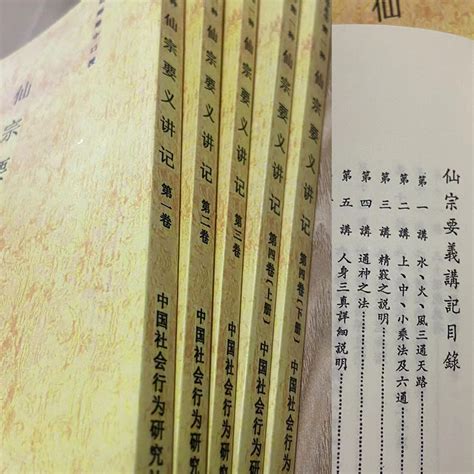 仙宗要
仙宗要义讲记 第一卷 中国社会行为研究
仙宗要义讲记 第二卷 中国社会行为研究
仙宗要义讲记 第三卷 中国社会行为研
仙宗要义讲记 第四卷(上册) 中国社会行为
仙宗要义讲记 第四卷(下册) 中国社会行为
仙
仙宗要義講記目錄
第一講 水、火、風三通天路……
第二講 上、中、小乘法及六通……
第三講 精竅之説明……
第四講 通神之法……
第五講 人身三真詳細説明……